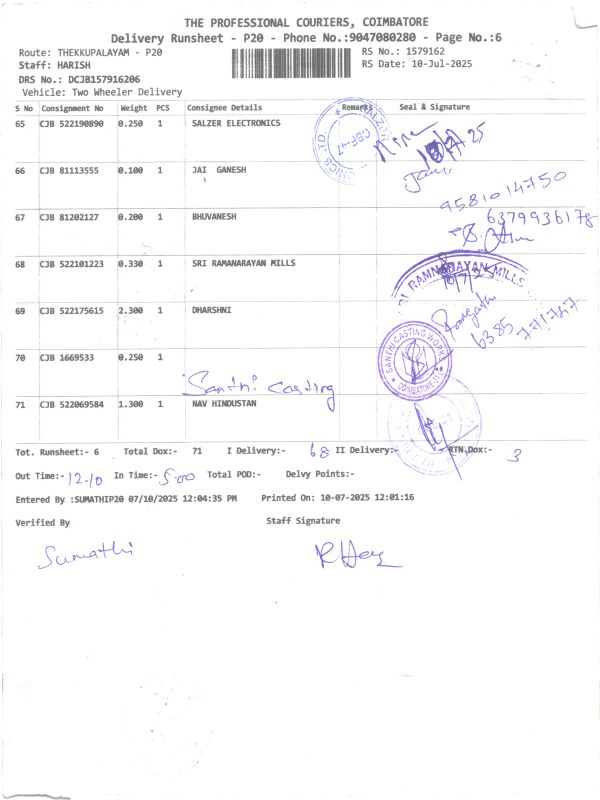 THE PROFESSIONAL COURIERS, COIMBATORE
Delivery Runsheet - P20 - Phone No.:9047080280 - Page No.:6
Route: THEKKUPALAYAM - P20 RS No.: 1579162
Staff: HARISH RS Date: 10-Jul-2025
DRS No.: DCJB157916206
Vehicle: Two Wheeler Delivery
S No Consignment No Weight PCS Consignee Details Remarks Seal & Signature
65 CJB 522190890 0.250 1 SALZER ELECTRONICS
66 CJB 81113555 0.100 1 JAI GANESH
9581014750
67 CJB 81202127 0.200 1 BHUVANESH 6379936178
68 CJB 522101223 0.330 1 SRI RAMANARAYAN MILLS
RAMNARAYAN MILLS
69 CJB 522175615 2.300 1 DHARSHNI
6385 771747
SANTHI CASTING WORKS
COIMBATORE
70 CJB 1669533 0.250 1
Santhi Casting
71 CJB 522069584 1.300 1 NAV HINDUSTAN
Tot. Runsheet:- 6 Total Dox:- 71 I Delivery:- 68 II Delivery:- RTN Dox:- 3
Out Time:- 12.10 In Time:- 5.00 Total POD:- Delvy Points:-
Entered By :SUMATHIP20 07/10/2025 12:04:35 PM Printed On: 10-07-2025 12:01:16
Verified By Staff Signature
Sumathi